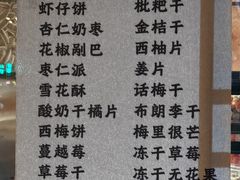 虾仔饼
杏仁奶枣
花椒剐巴
枣仁派
雪花酥
酸奶干橘片
西梅饼
蔓越莓
草莓干
枇杷干
金桔干
西柚片
姜片
话梅干
布朗李干
梅里很芒
冻干草莓
冻干无花果